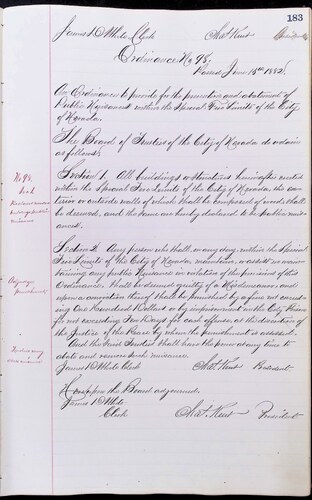 183
James D White Clerk Chas. Kent President
Ordinance No 98,
Passed June 15th 1885.
An Ordinance to provide for the prevention and abatement of
Public Nuisances within the Special Fire Limits of the City
of Nevada.
The Board of Trustees of the City of Nevada do ordain
as follows:
No 98.
Section 1. All buildings or structures hereinafter erected
within the Special Fire Limits of the City of Nevada, the exterior
or outside walls of which shall be composed of wood, shall
be deemed, and the same are hereby declared to be public nuisances.
Section 2. Any person who shall, on any day, within the Special
Fire Limits of the City of Nevada, maintain, or assist in maintaining
any public Nuisance in violation of the provisions of this
Ordinance, shall be deemed guilty of a Misdemeanor, and
upon a conviction thereof shall be punished by a fine not exceeding
One Hundred Dollars or by imprisonment in the City Prison
for not exceeding Ten Days for each offense, at the discretion of
the Justice of the Peace by whom the punishment is assessed.
And the said Trustees shall have the power at any time to
abate and remove such nuisance.
James D White Clerk Chas. Kent President
Whereupon the Board adjourned.
James D White
Clerk Chas. Kent President